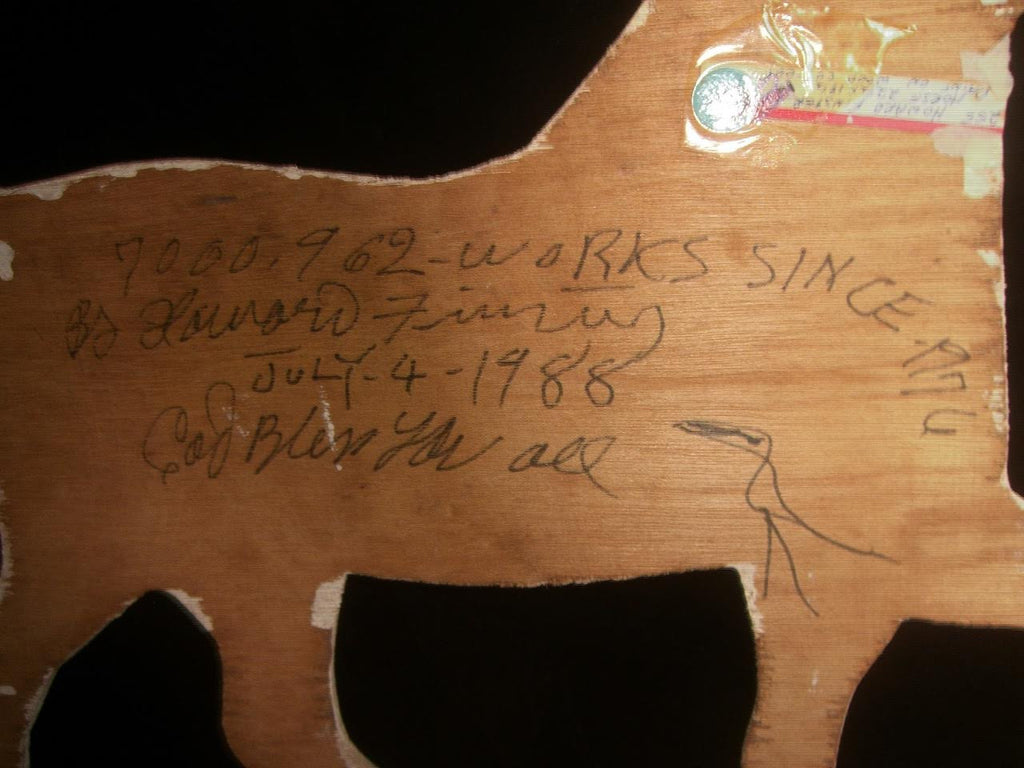 7000.962-WORKS SINCE-1976
By Howard Finster
JULY-4-1988
God Bless You all
HOWARD FINSTER